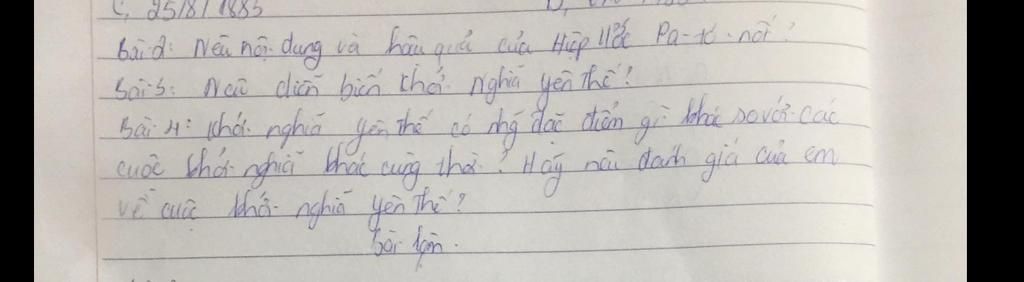 C, 25/8/1885
Bài 2: Nêu nội dung và hậu quả của Hiệp ước Pa-tơ-nốt?
Bài 3: Nêu diễn biến khởi nghĩa yên thế?
Bài 4: Khởi nghĩa yên thế có nhg đặc điểm gì khác so với các
cuộc khởi nghĩa khác cùng thời? Hãy nêu đánh giá của em
về cuộc khởi nghĩa yên thế?
bài làm.